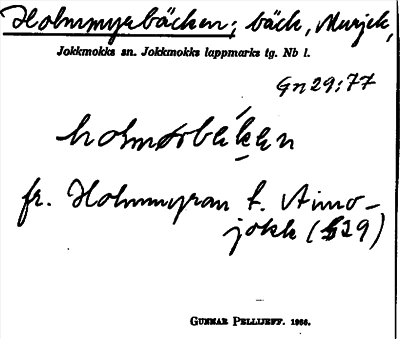 Holmmyrbäcken; bäck, Murjek,
Jokkmokks sn. Jokkmokks lappmarks tg. Nb l.
Gn 29:77
fr. Holmmyran t. Aimo-
jokk (§29)
GUNNAR PELLIJEFF. 1966.